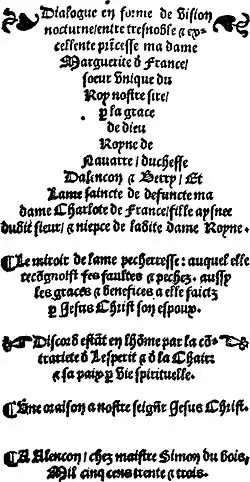 Dialogue en forme de vision
nocturne/entre tresnoble & ex-
cellente prĩcesse ma dame
Marguerite d̃ France/
soeur vnique du
Roy nostre sire/
ꝑ la grace
de dieu
Royne de
Nauarre/ duchesse
Dalencon & Berry/ Et
Lame saincte de defuncte ma
dame Charlote de France/fille aysnee
dudit sieur/ & niepce de ladite dame Royne.
¶Le miroir de lame pecheresse: auquel elle
recõgnoist ses faultes & pechez. aussy
les graces & benefices a elle faictz
ꝑ Jesus Christ son espoux.
Discord estãt en lhõme par la cõ-
trariete d̃ Lesperit & d̃ la Chair
& sa paix ꝑ vie spirituelle.
¶Vne oraison a nostre seigñr Jesus Christ.
¶A Alencon/ chez maistre Simon du bois,
Mil cinq cens trente & trois.